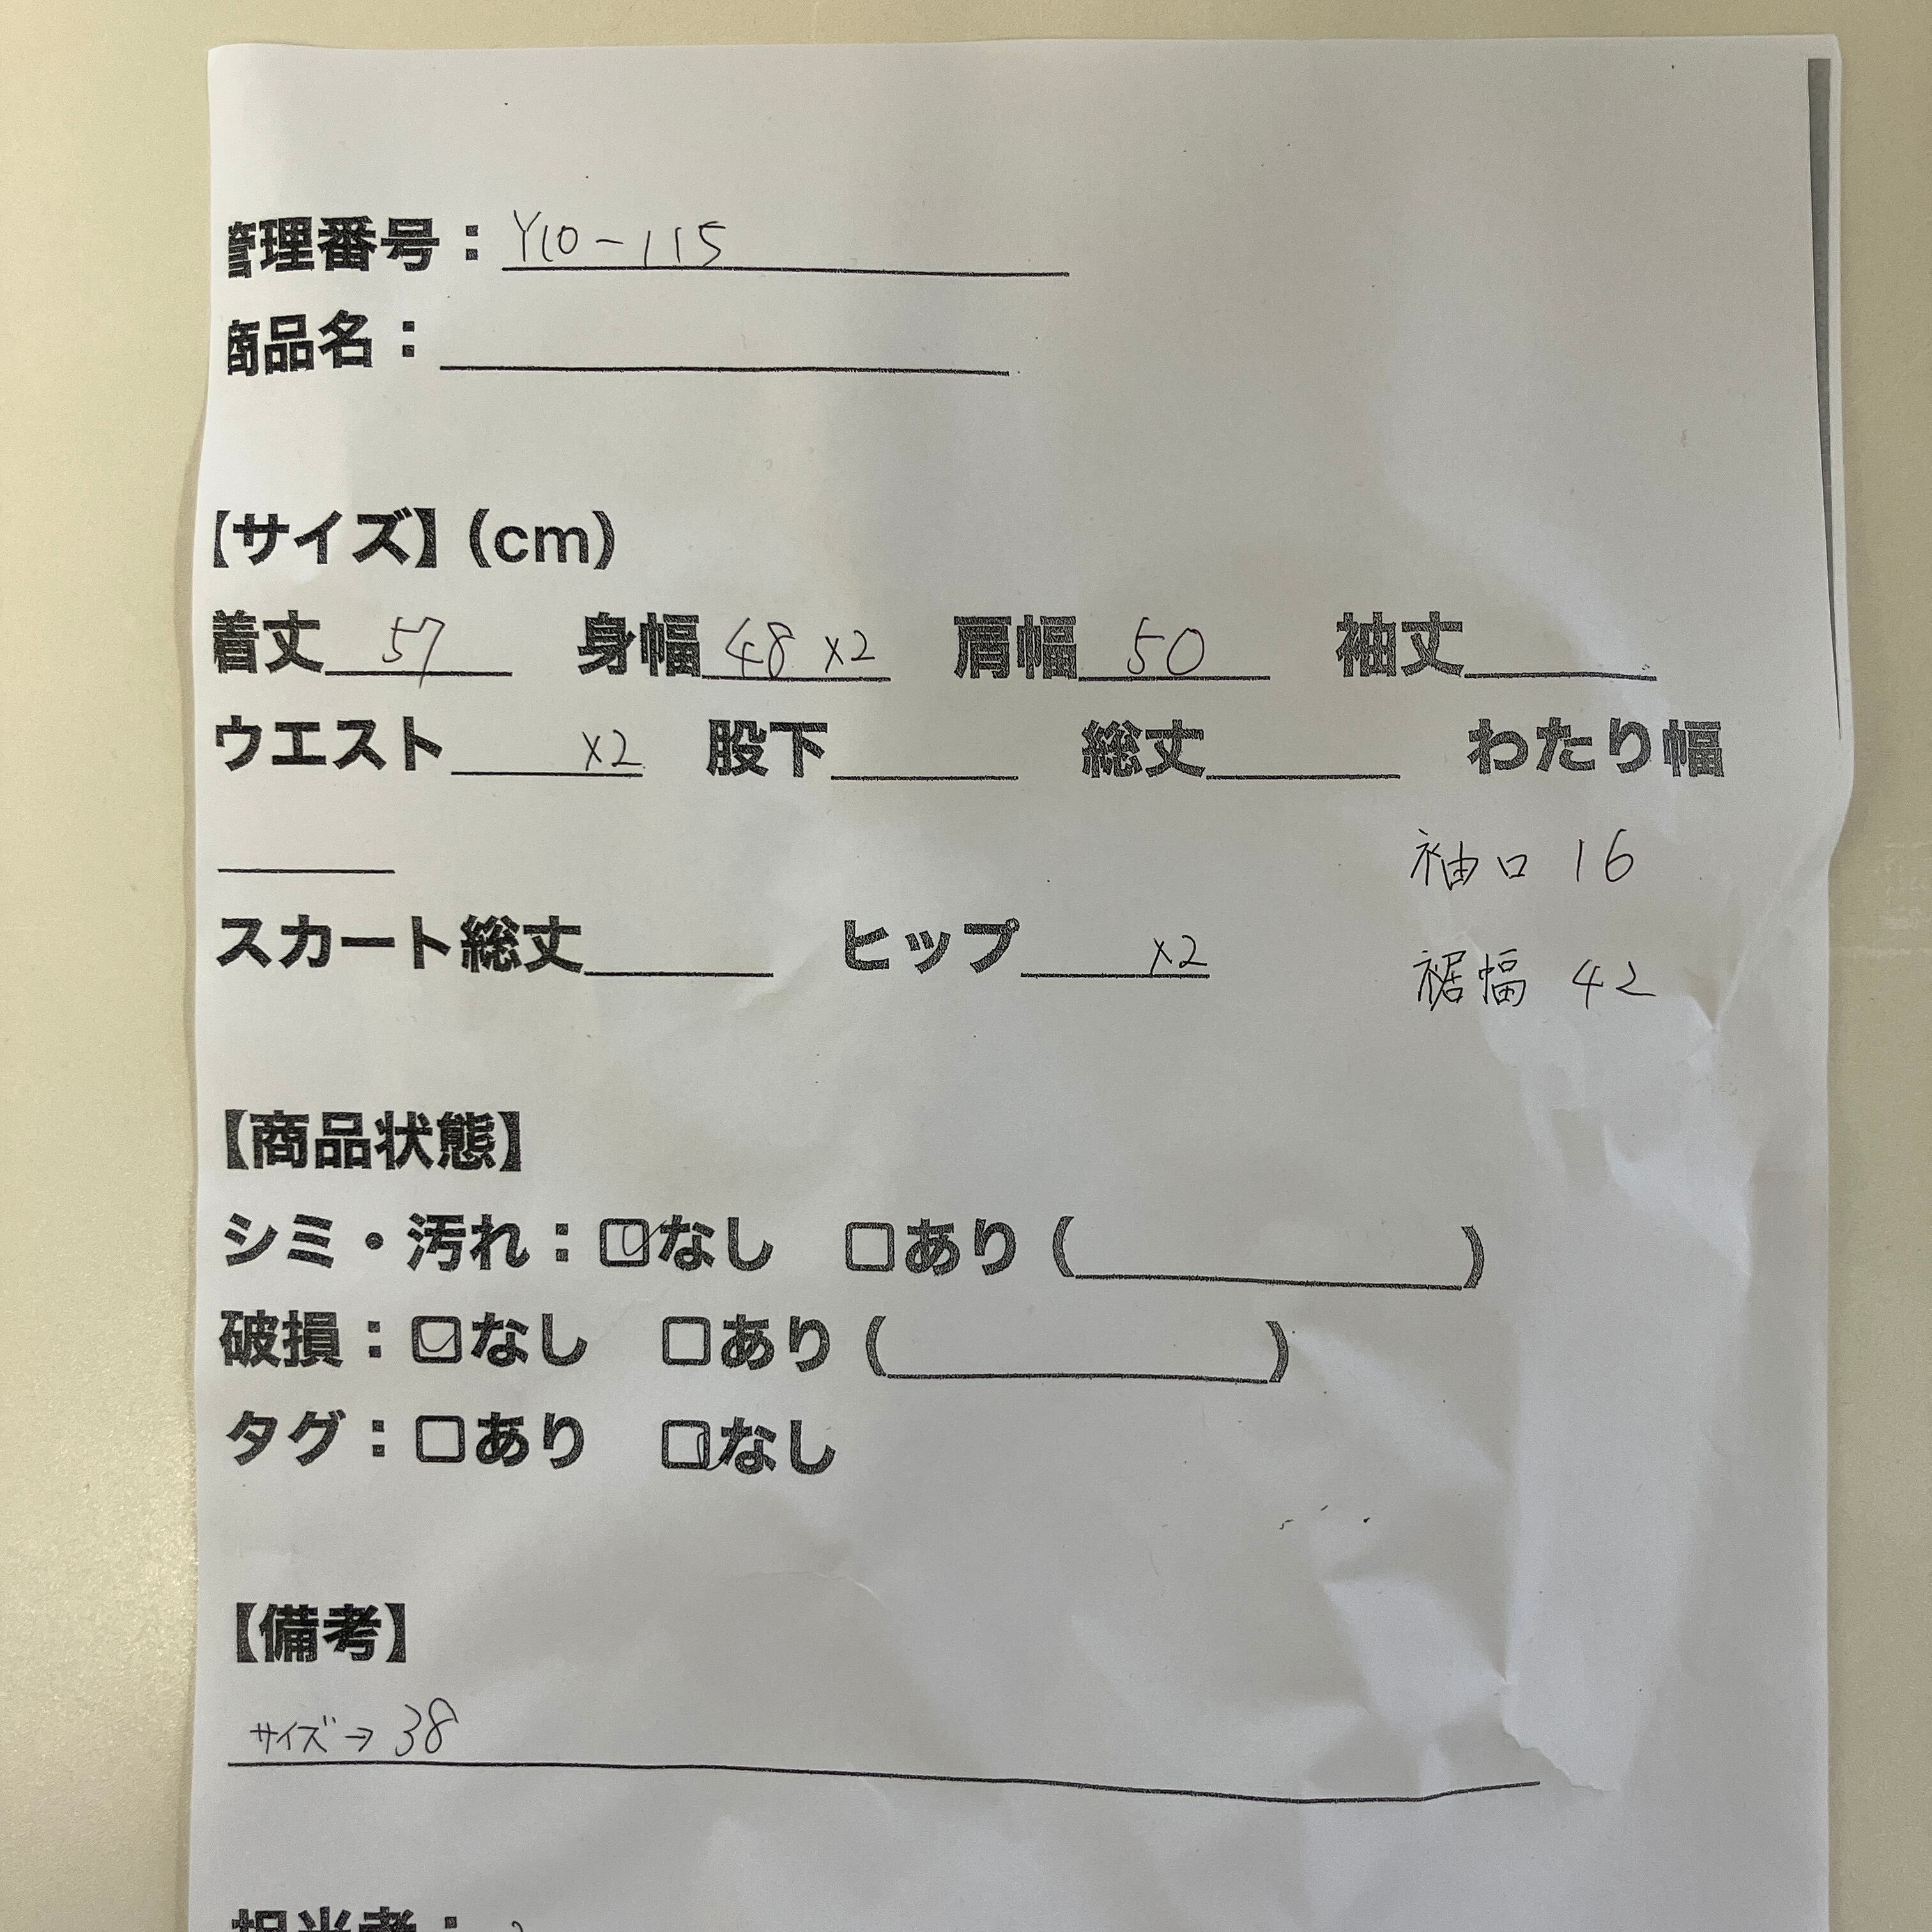 管理番号：Y10-115
商品名：
【サイズ】(cm)
着丈 57 身幅 48 x2 肩幅 50 袖丈
ウエスト x2 股下 総丈 わたり幅
袖口 16
スカート総丈 ヒップ x2
裾幅 42
【商品状態】
シミ・汚れ：☑なし □あり ( )
破損：☑なし □あり ( )
タグ：□あり ☑なし
【備考】
サイズ→38
担当者：